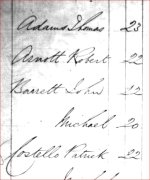 Adams Thomas 23
Arnott Robert 22
Barrett John 22
Michael 20
Costello Patrick 22